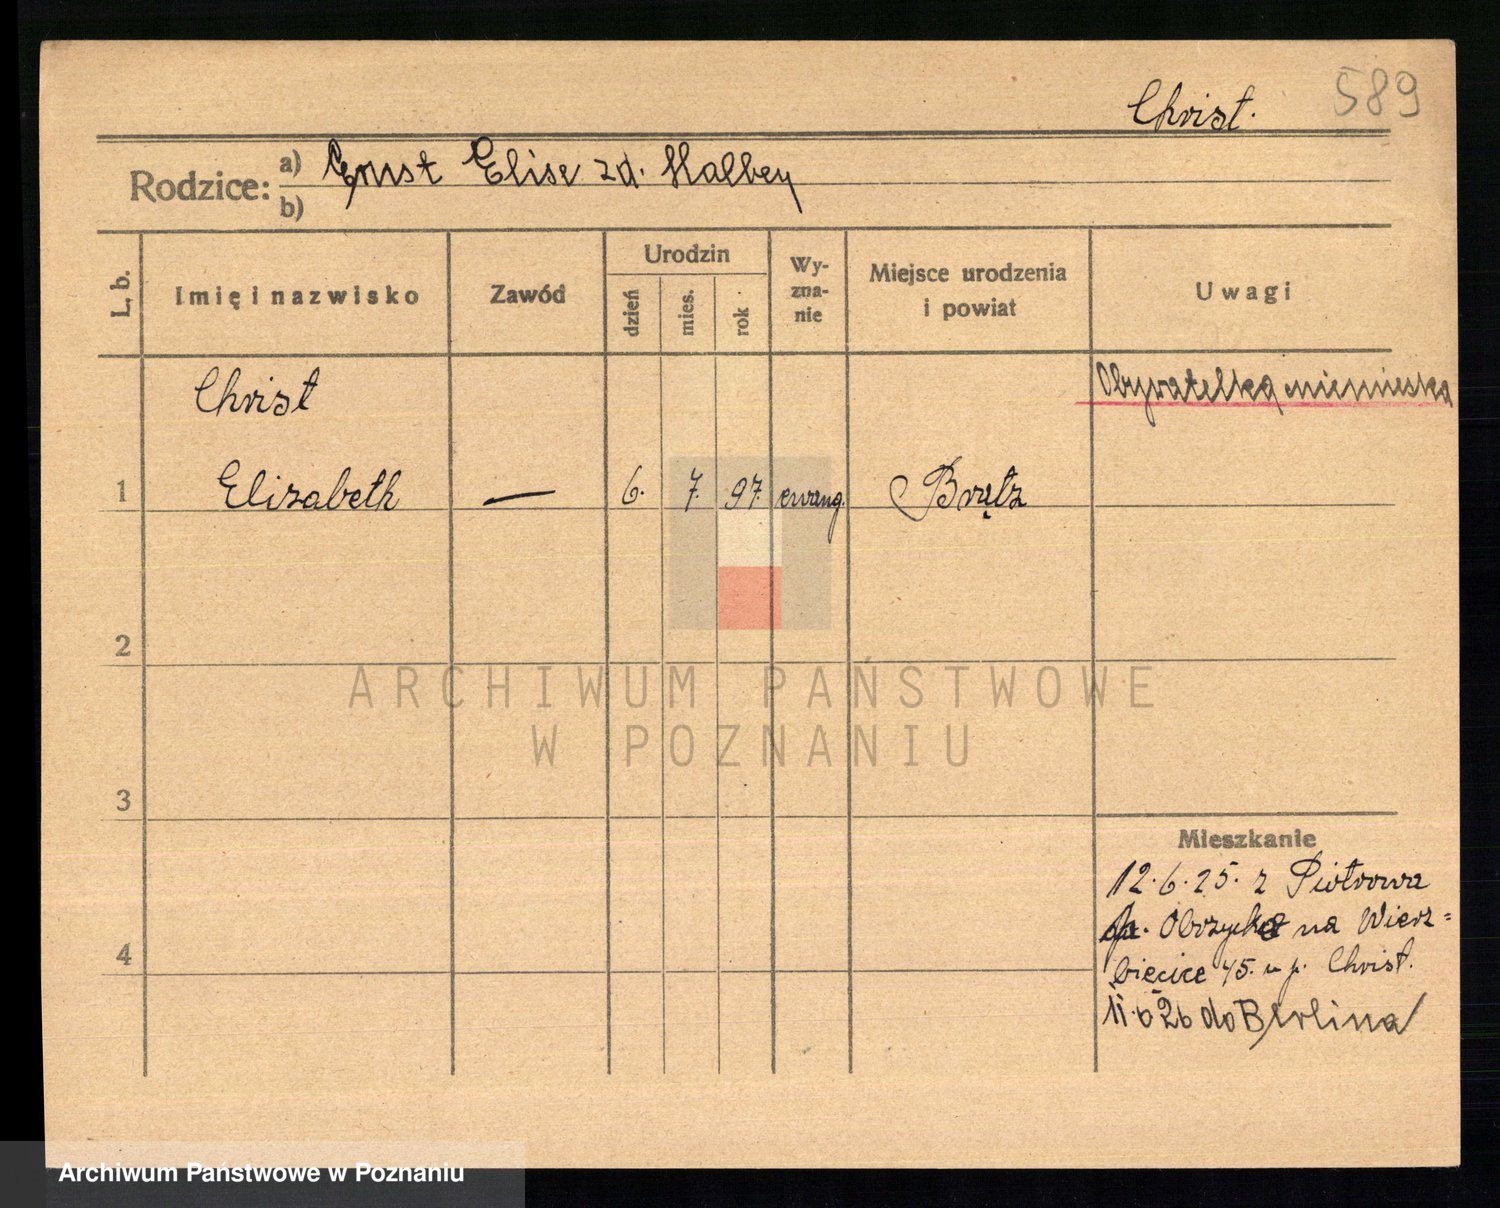 Christ. 589
Rodzice: a) Ernst Elise zd. Halbey
b)
L. b. Imię i nazwisko Zawód Urodzin dzień mies. rok Wy-zna-nie Miejsce urodzenia i powiat Uwagi
Christ Obywatelka niemieska
1 Elisabeth — 6. 7. 97. ewang. Brątz
2
ARCHIWUM PAŃSTWOWE
W POZNANIU
3
Mieszkanie
12.6.25. z Piotrowa
Obrzycko na Wierz=
4
bięcice 45. u p. Christ.
11.6 26 do Berlina
Archiwum Państwowe w Poznaniu